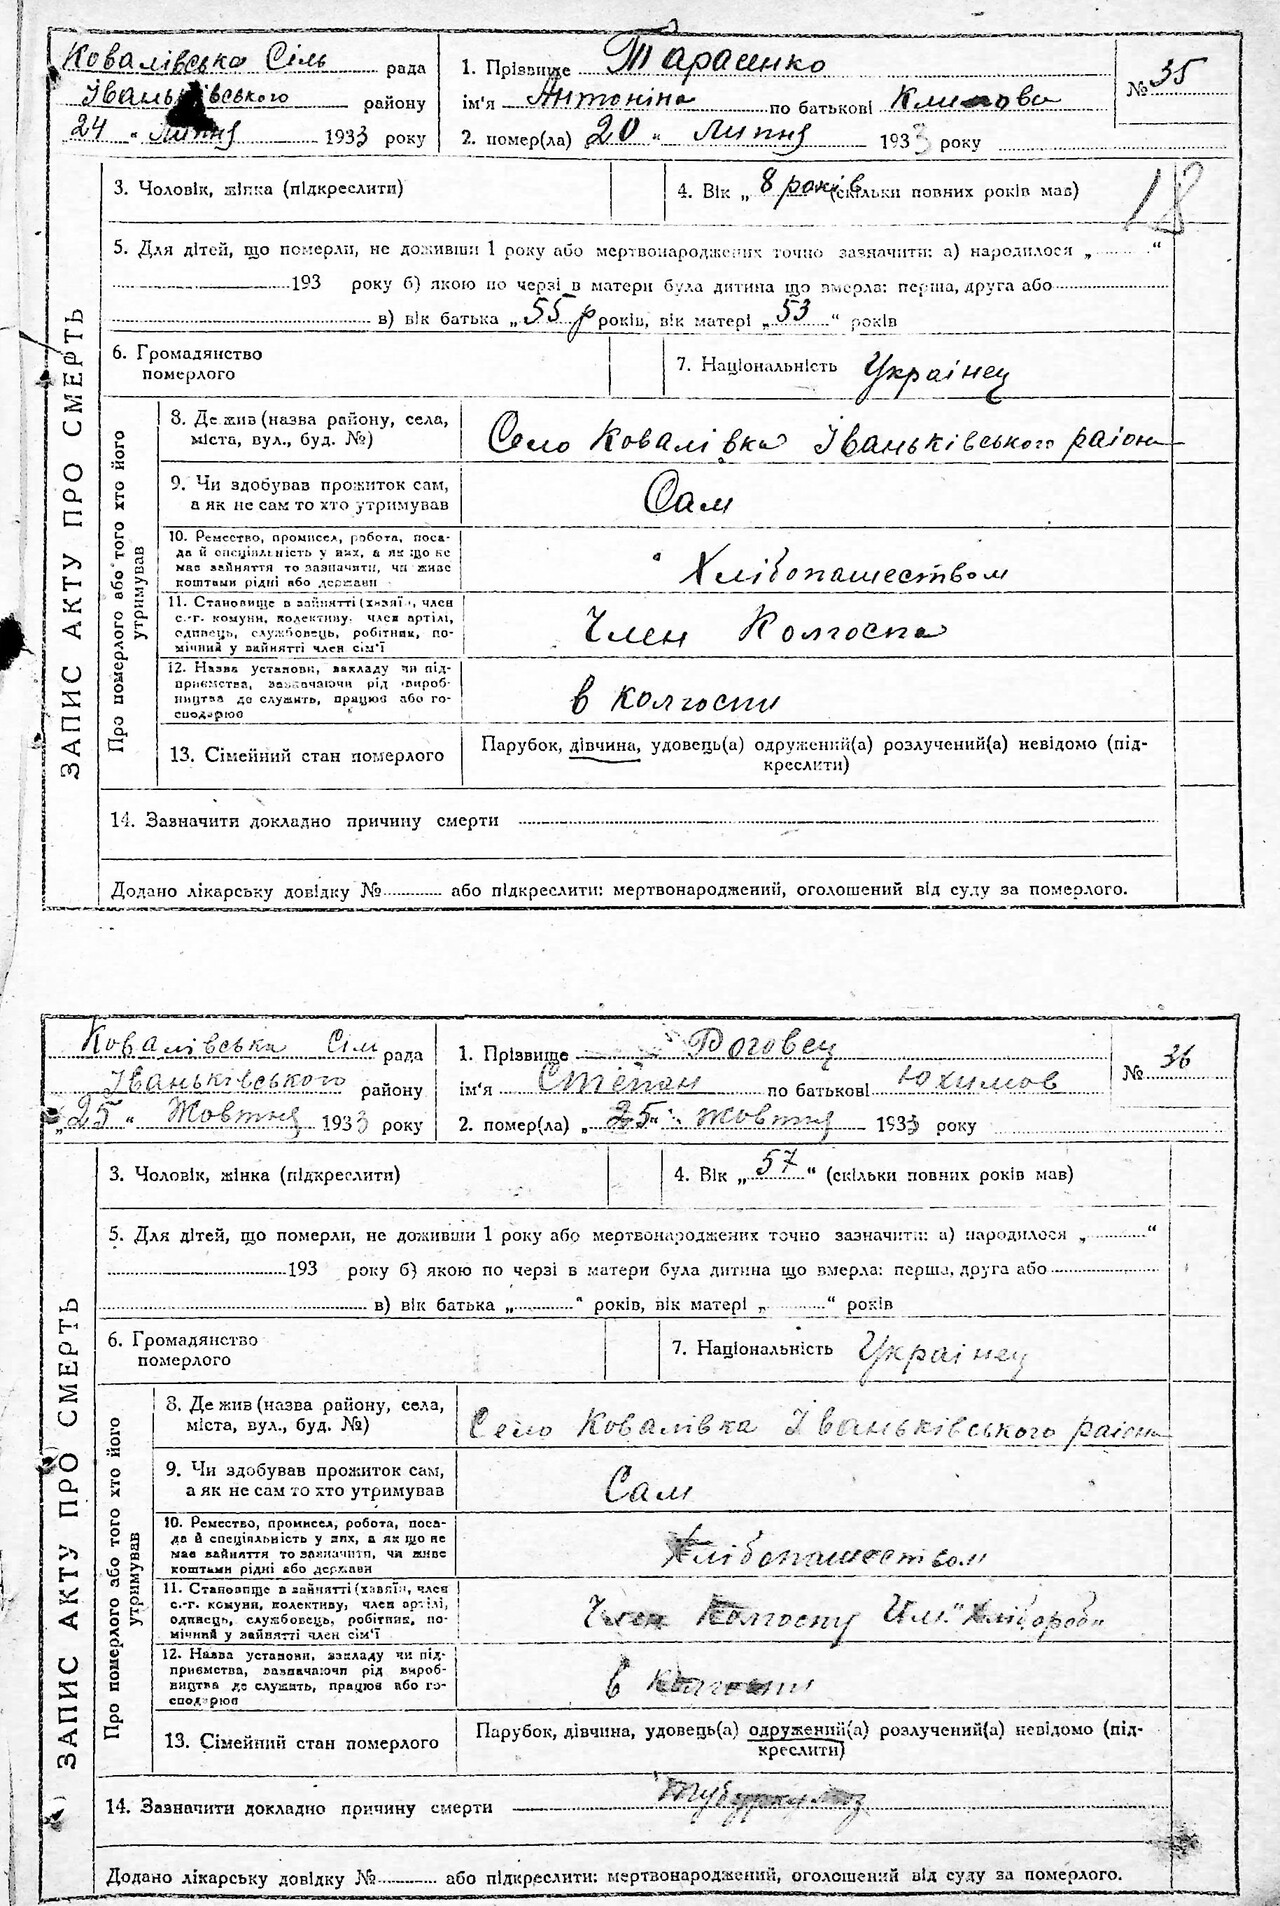 Ковалівська Сіль рада
Іваньківського району
24 " Липня 1933 року
1. Прізвище Тарасенко
ім'я Антоніна по батькові Климова
2. помер(ла) 20 " Липня 1933 року
№ 35
3. Чоловік, жінка (підкреслити)
4. Вік „ 8 років (скільки повних років мав)
18
5. Для дітей, що померли, не доживши 1 року або мертвонароджених точно зазначити: а) народилося „ “
193 року б) якою по черзі в матери була дитина що вмерла: перша, друга або
в) вік батька „ 55 р років, вік матері „ 53 “ років
6. Громадянство
померлого
7. Національність Українец
ЗАПИС АКТУ ПРО СМЕРТЬ
Про померлого або того хто його
утримував
8. Де жив (назва району, села,
міста, вул., буд. №)
Село Ковалівка Іваньківського раіона
9. Чи здобував прожиток сам,
а як не сам то хто утримував
Сам
10. Ремество, промисел, робота, поса-
да й спеціяльність у них, а як що не
має зайняття то зазначити, чи живе
коштами рідні або держави
Хлібопашеством
11. Становище в зайнятті (хазяїн, член
с.-г. комуни, колективу, член артілі,
одинець, службовець, робітник, по-
мічний у зайнятті член сім'ї
Член Колгоспа
12. Назва установи, закладу чи під-
приємства, зазначаючи рід вироб-
ництва де служить, працює або го-
сподарює
в колгоспи
13. Сімейний стан померлого
Парубок, дівчина, удовець(а) одружений(а) розлучений(а) невідомо (під-
креслити)
14. Зазначити докладно причину смерти
Додано лікарську довідку № або підкреслити: мертвонароджений, оголошений від суду за померлого.
Ковалівська Сіль рада
Іваньківського району
„25 " Жовтня 1933 року
1. Прізвище Роговец
ім'я Степан по батькові Юхимов
2. помер(ла) „ 25 " жовтня 1933 року
№ 36
3. Чоловік, жінка (підкреслити)
4. Вік „ 57 “ (скільки повних років мав)
5. Для дітей, що померли, не доживши 1 року або мертвонароджених точно зазначити: а) народилося „ “
193 року б) якою по черзі в матери була дитина що вмерла: перша, друга або
в) вік батька „ “ років, вік матері „ “ років
6. Громадянство
померлого
7. Національність Українец
ЗАПИС АКТУ ПРО СМЕРТЬ
Про померлого або того хто його
утримував
8. Де жив (назва району, села,
міста, вул., буд. №)
Село Ковалівка Іваньківського раіона
9. Чи здобував прожиток сам,
а як не сам то хто утримував
Сам
10. Ремество, промисел, робота, поса-
да й спеціяльність у них, а як що не
має зайняття то зазначити, чи живе
коштами рідні або держави
Хлібопашеством
11. Становище в зайнятті (хазяїн, член
с.-г. комуни, колективу, член артілі,
одинець, службовець, робітник, по-
мічний у зайнятті член сім'ї
Член Колгоспу Им." Хлібороби
12. Назва установи, закладу чи під-
приємства, зазначаючи рід вироб-
ництва де служить, працює або го-
сподарює
в колгоспи
13. Сімейний стан померлого
Парубок, дівчина, удовець(а) одружений(а) розлучений(а) невідомо (під-
креслити)
14. Зазначити докладно причину смерти Тубуркулоз
Додано лікарську довідку № або підкреслити: мертвонароджений, оголошений від суду за померлого.